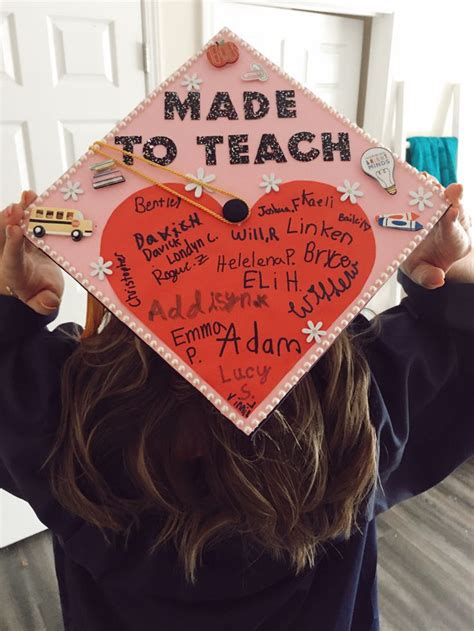 MADE
TO TEACH
MINDS
Bentley
Joshua.F
Kaeli
Bailey
Daxish
Davick
Londyn C.
Will,R
Linken
Rogue-Z
Helelena P.
Bryce
Christopher
ELi H.
Addisyn
Emma
P.
Adam
Lucy
S.